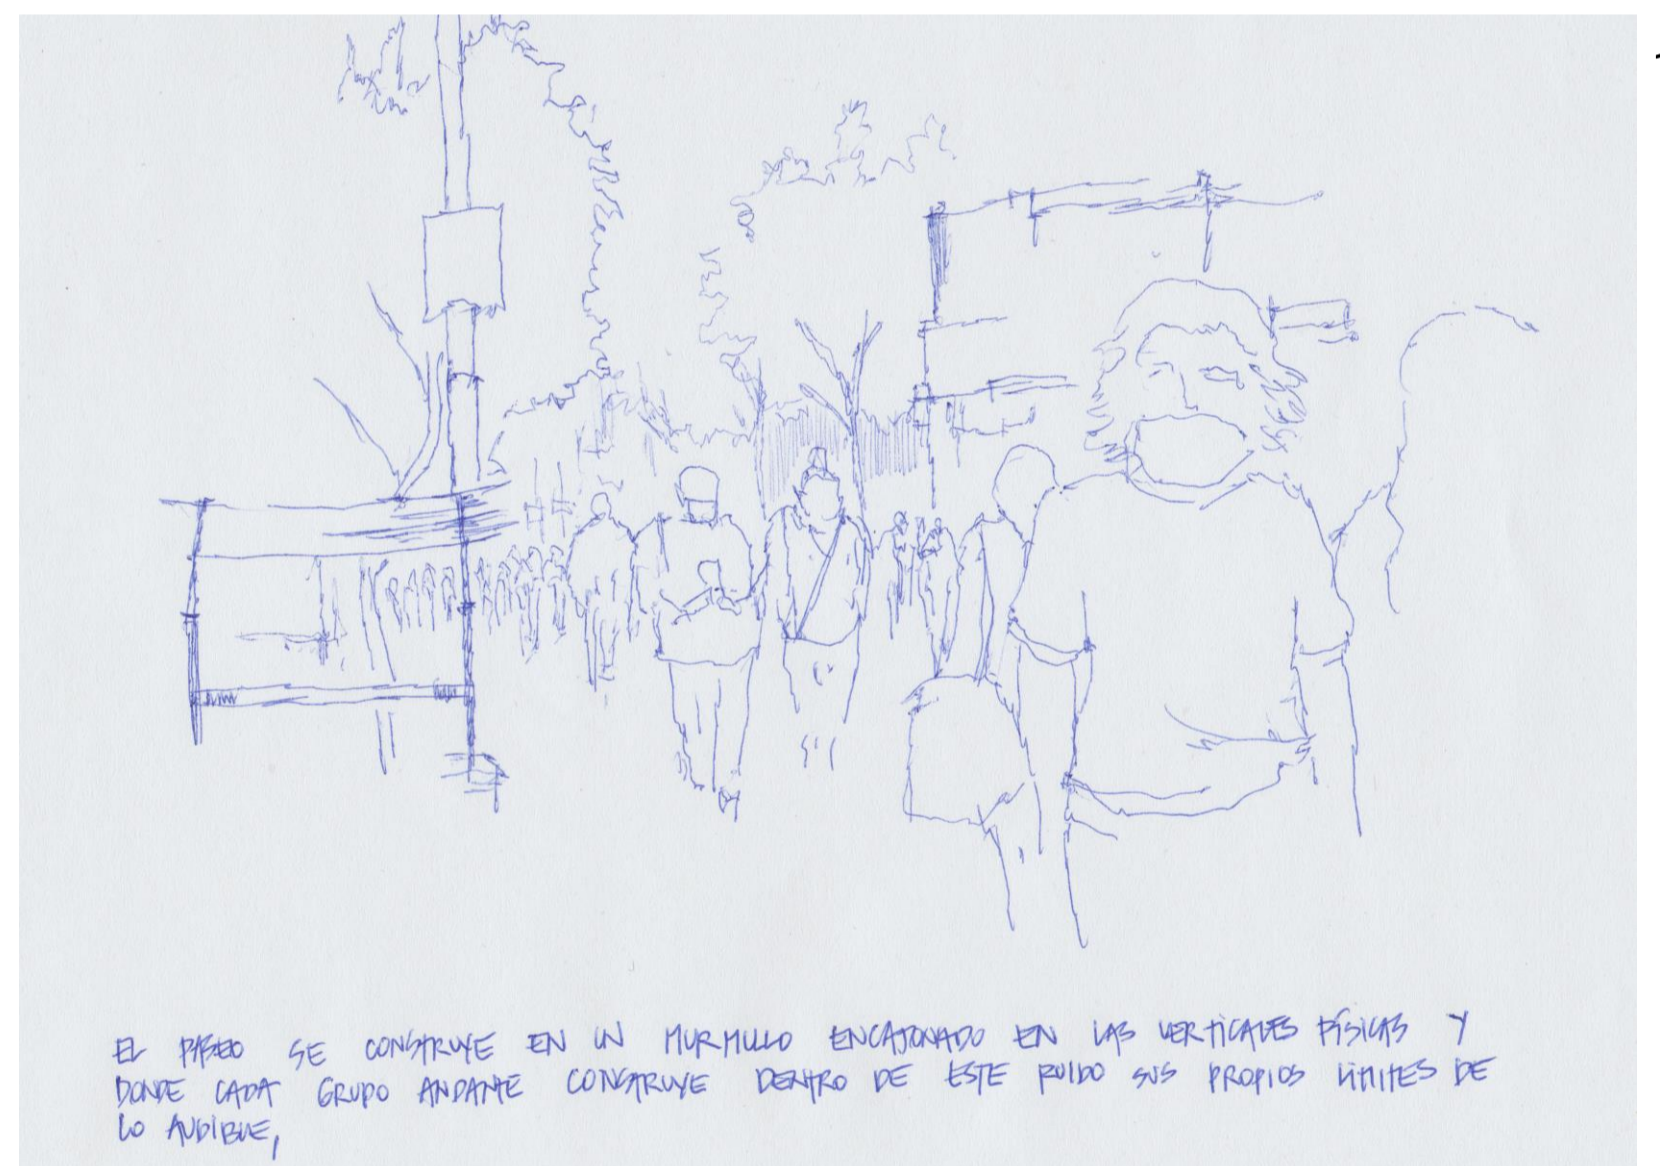 EL PASEO SE CONSTRUYE EN UN MURMULLO ENCAJONADO EN LAS VERTICALES FÍSICAS Y
DONDE CADA GRUPO ANDANTE CONSTRUYE DENTRO DE ESTE RUIDO SUS PROPIOS LÍMITES DE
LO AUDIBLE,